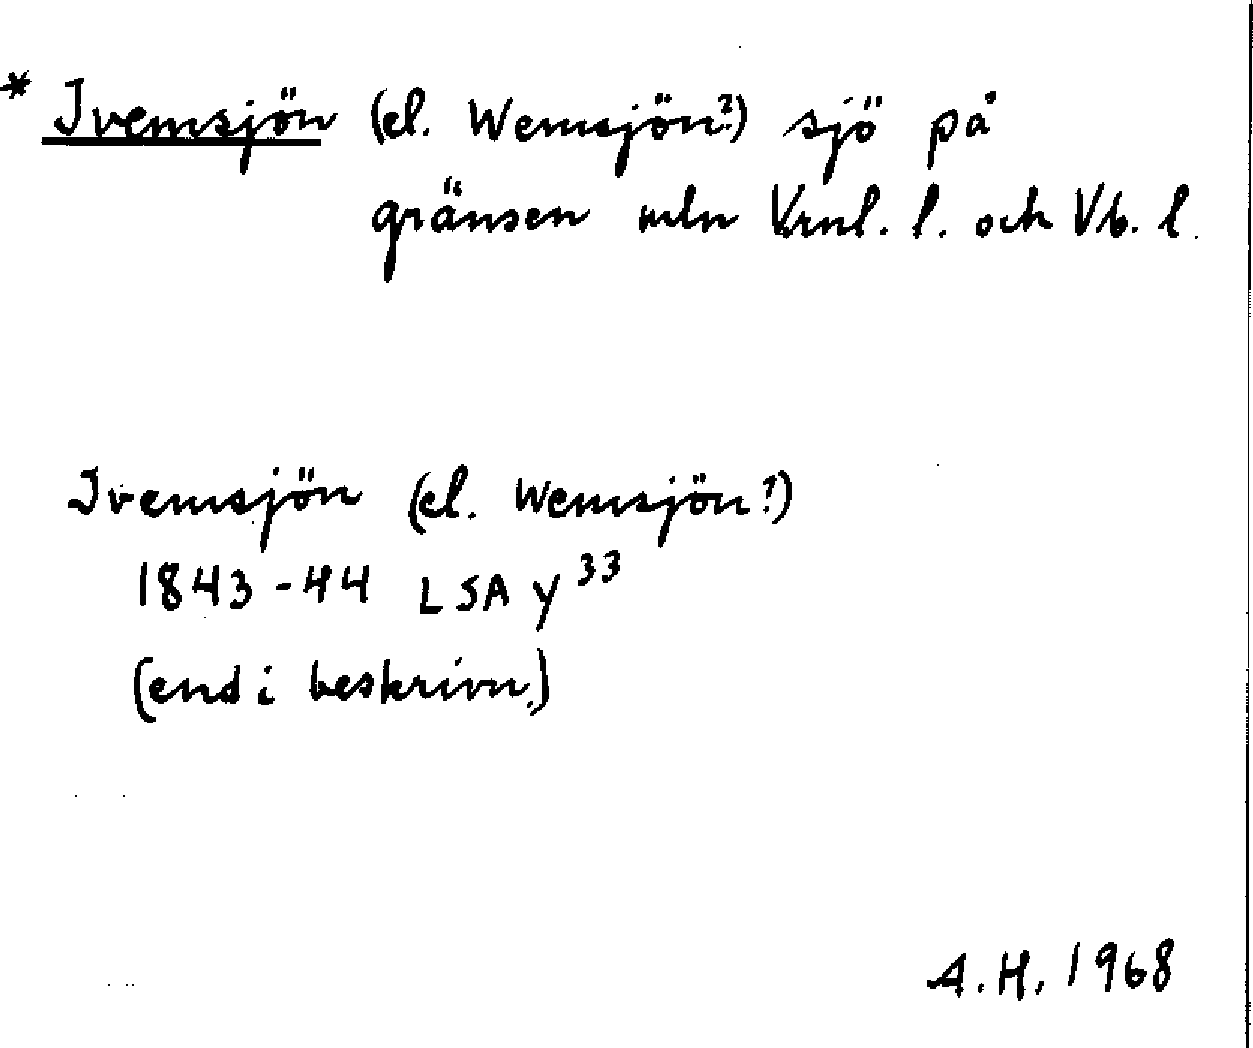 * Ivemsjön (el. Wemsjön?) sjö på
gränsen mln Vrml. l. och Vb. l.
Ivemsjön (el. Wemsjön?)
1843-44 LSA Y³³
(end i beskrivn.)
A. H. 1968